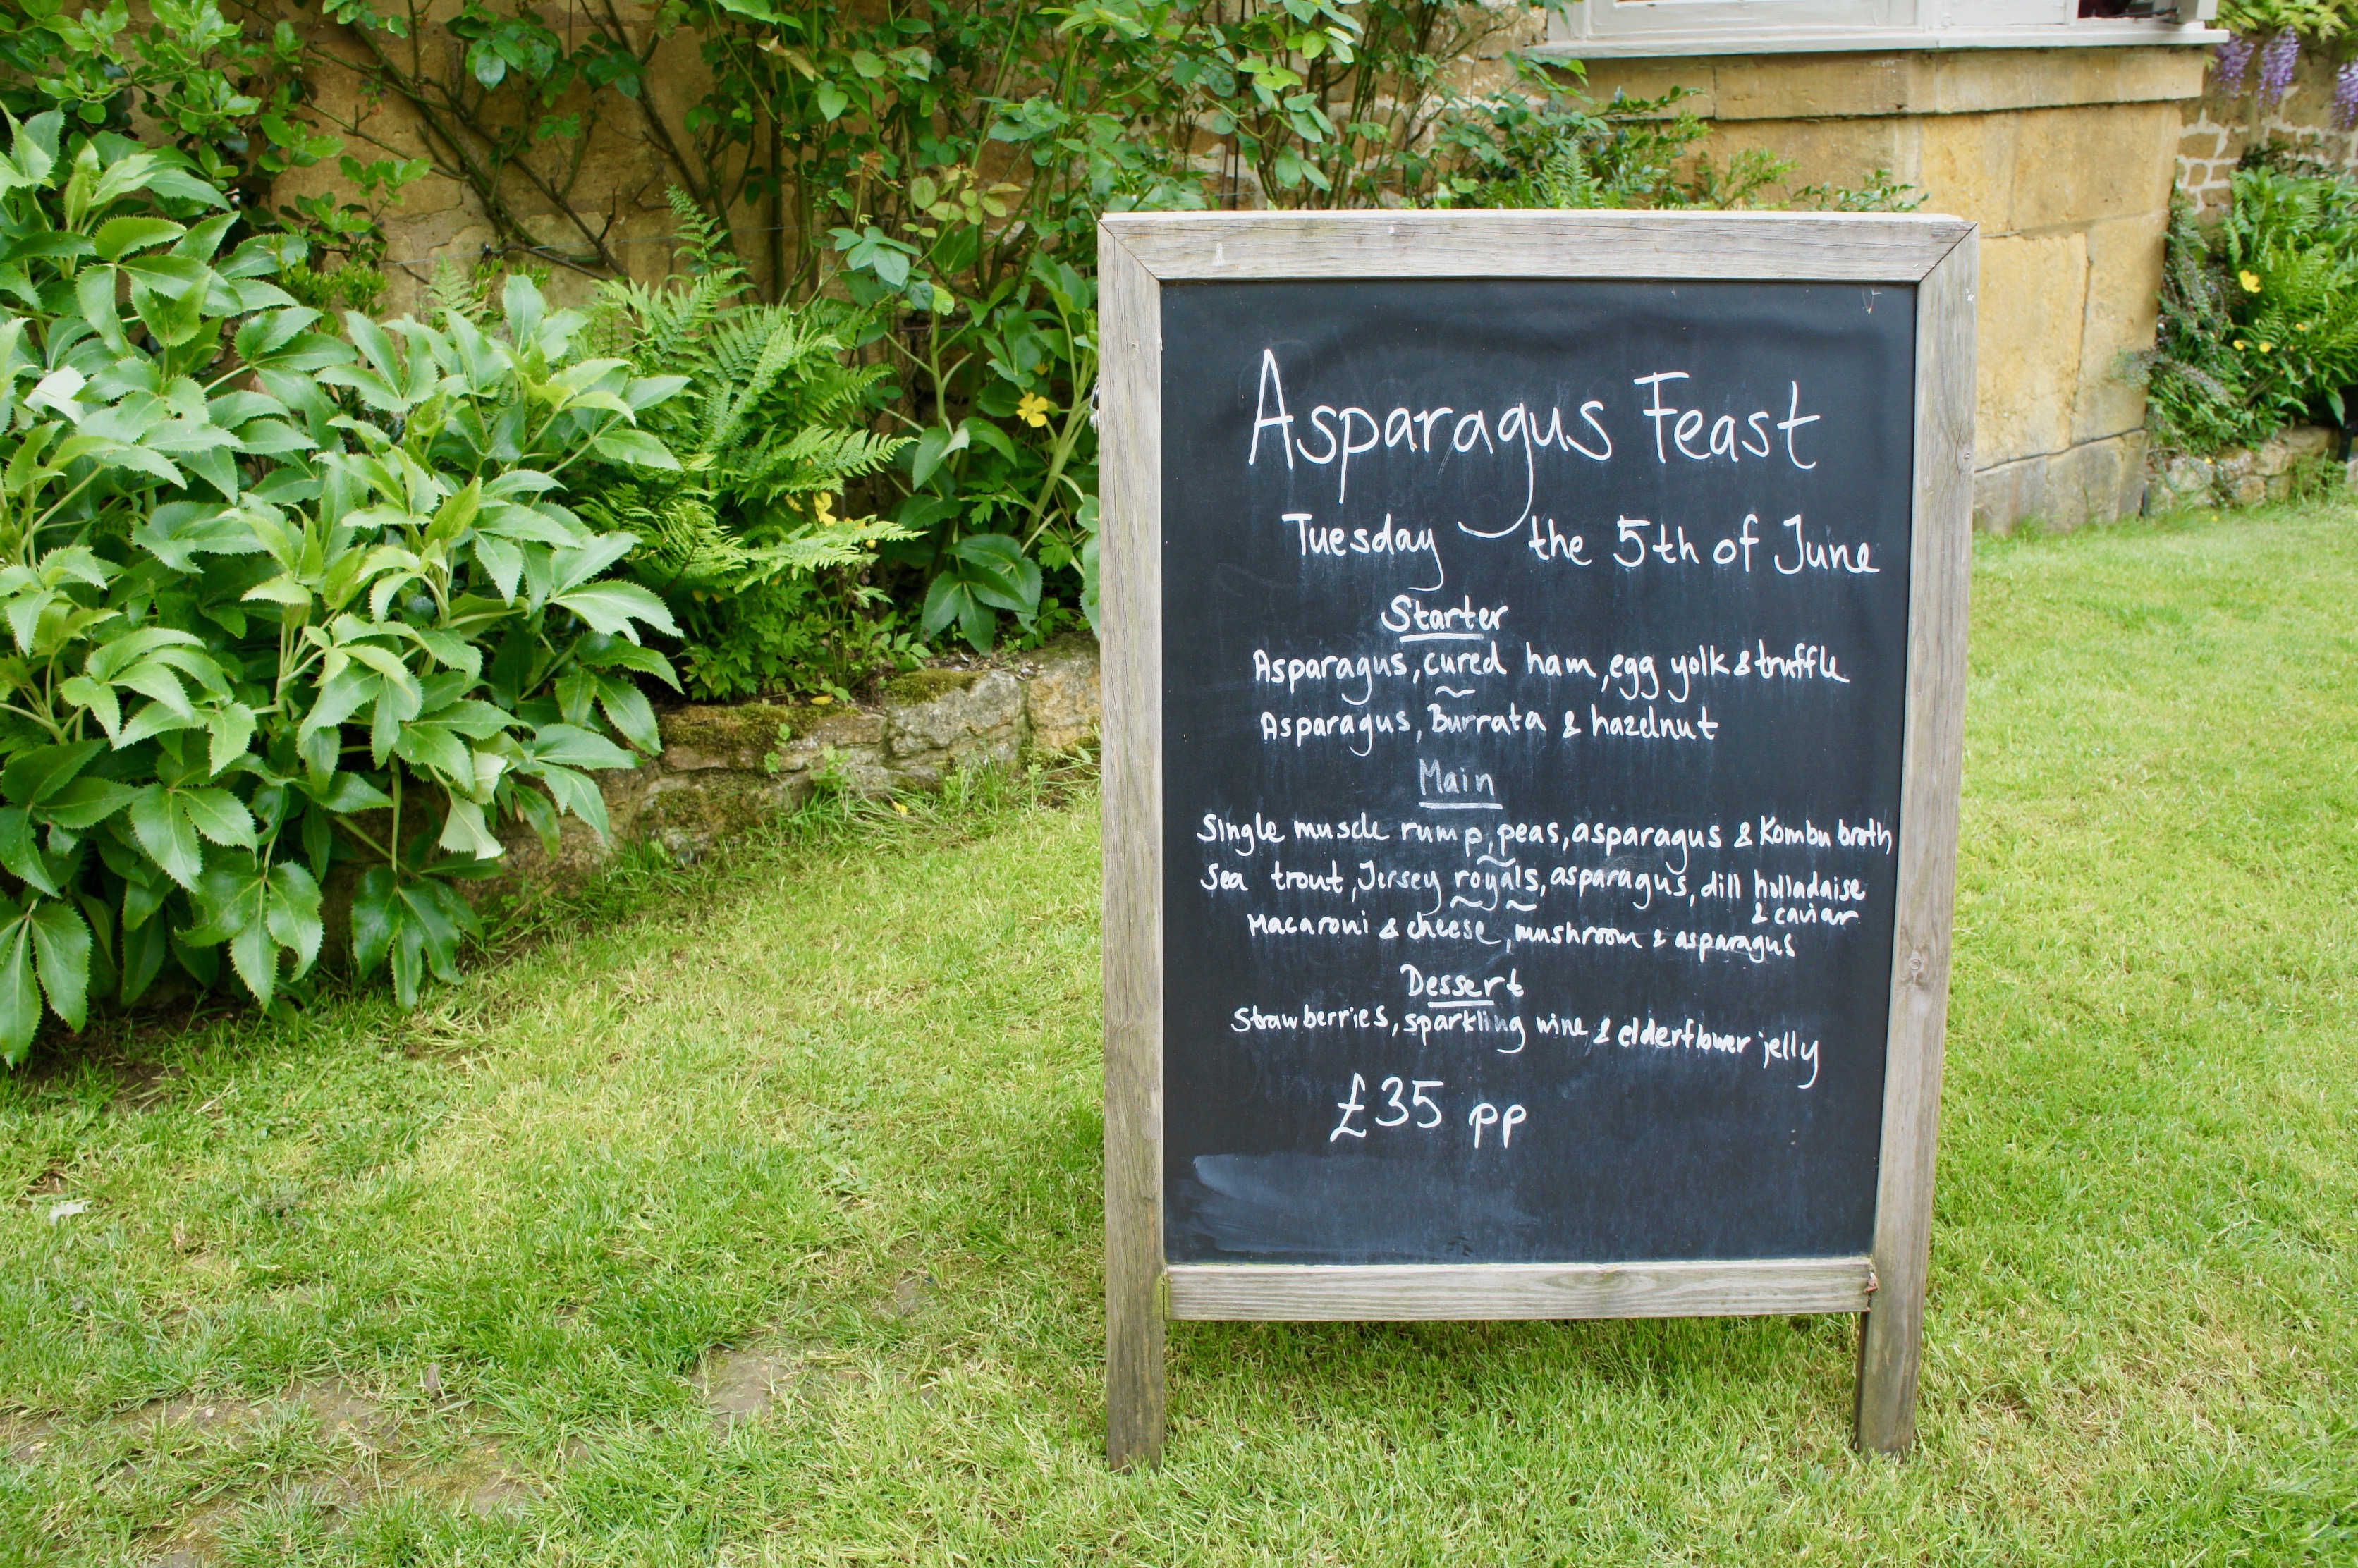 Asparagus Feast
Tuesday the 5th of June
Starter
Asparagus, cured ham, egg yolk & truffle
~
Asparagus, Burrata & hazelnut
Main
Single muscle rump, peas, asparagus & Kombu broth
~
Sea trout, Jersey royals, asparagus, dill holladaise
& caviar
~ ~
Macaroni & cheese, mushroom & asparagus
Dessert
Strawberries, sparkling wine & elderflower jelly
£35 pp